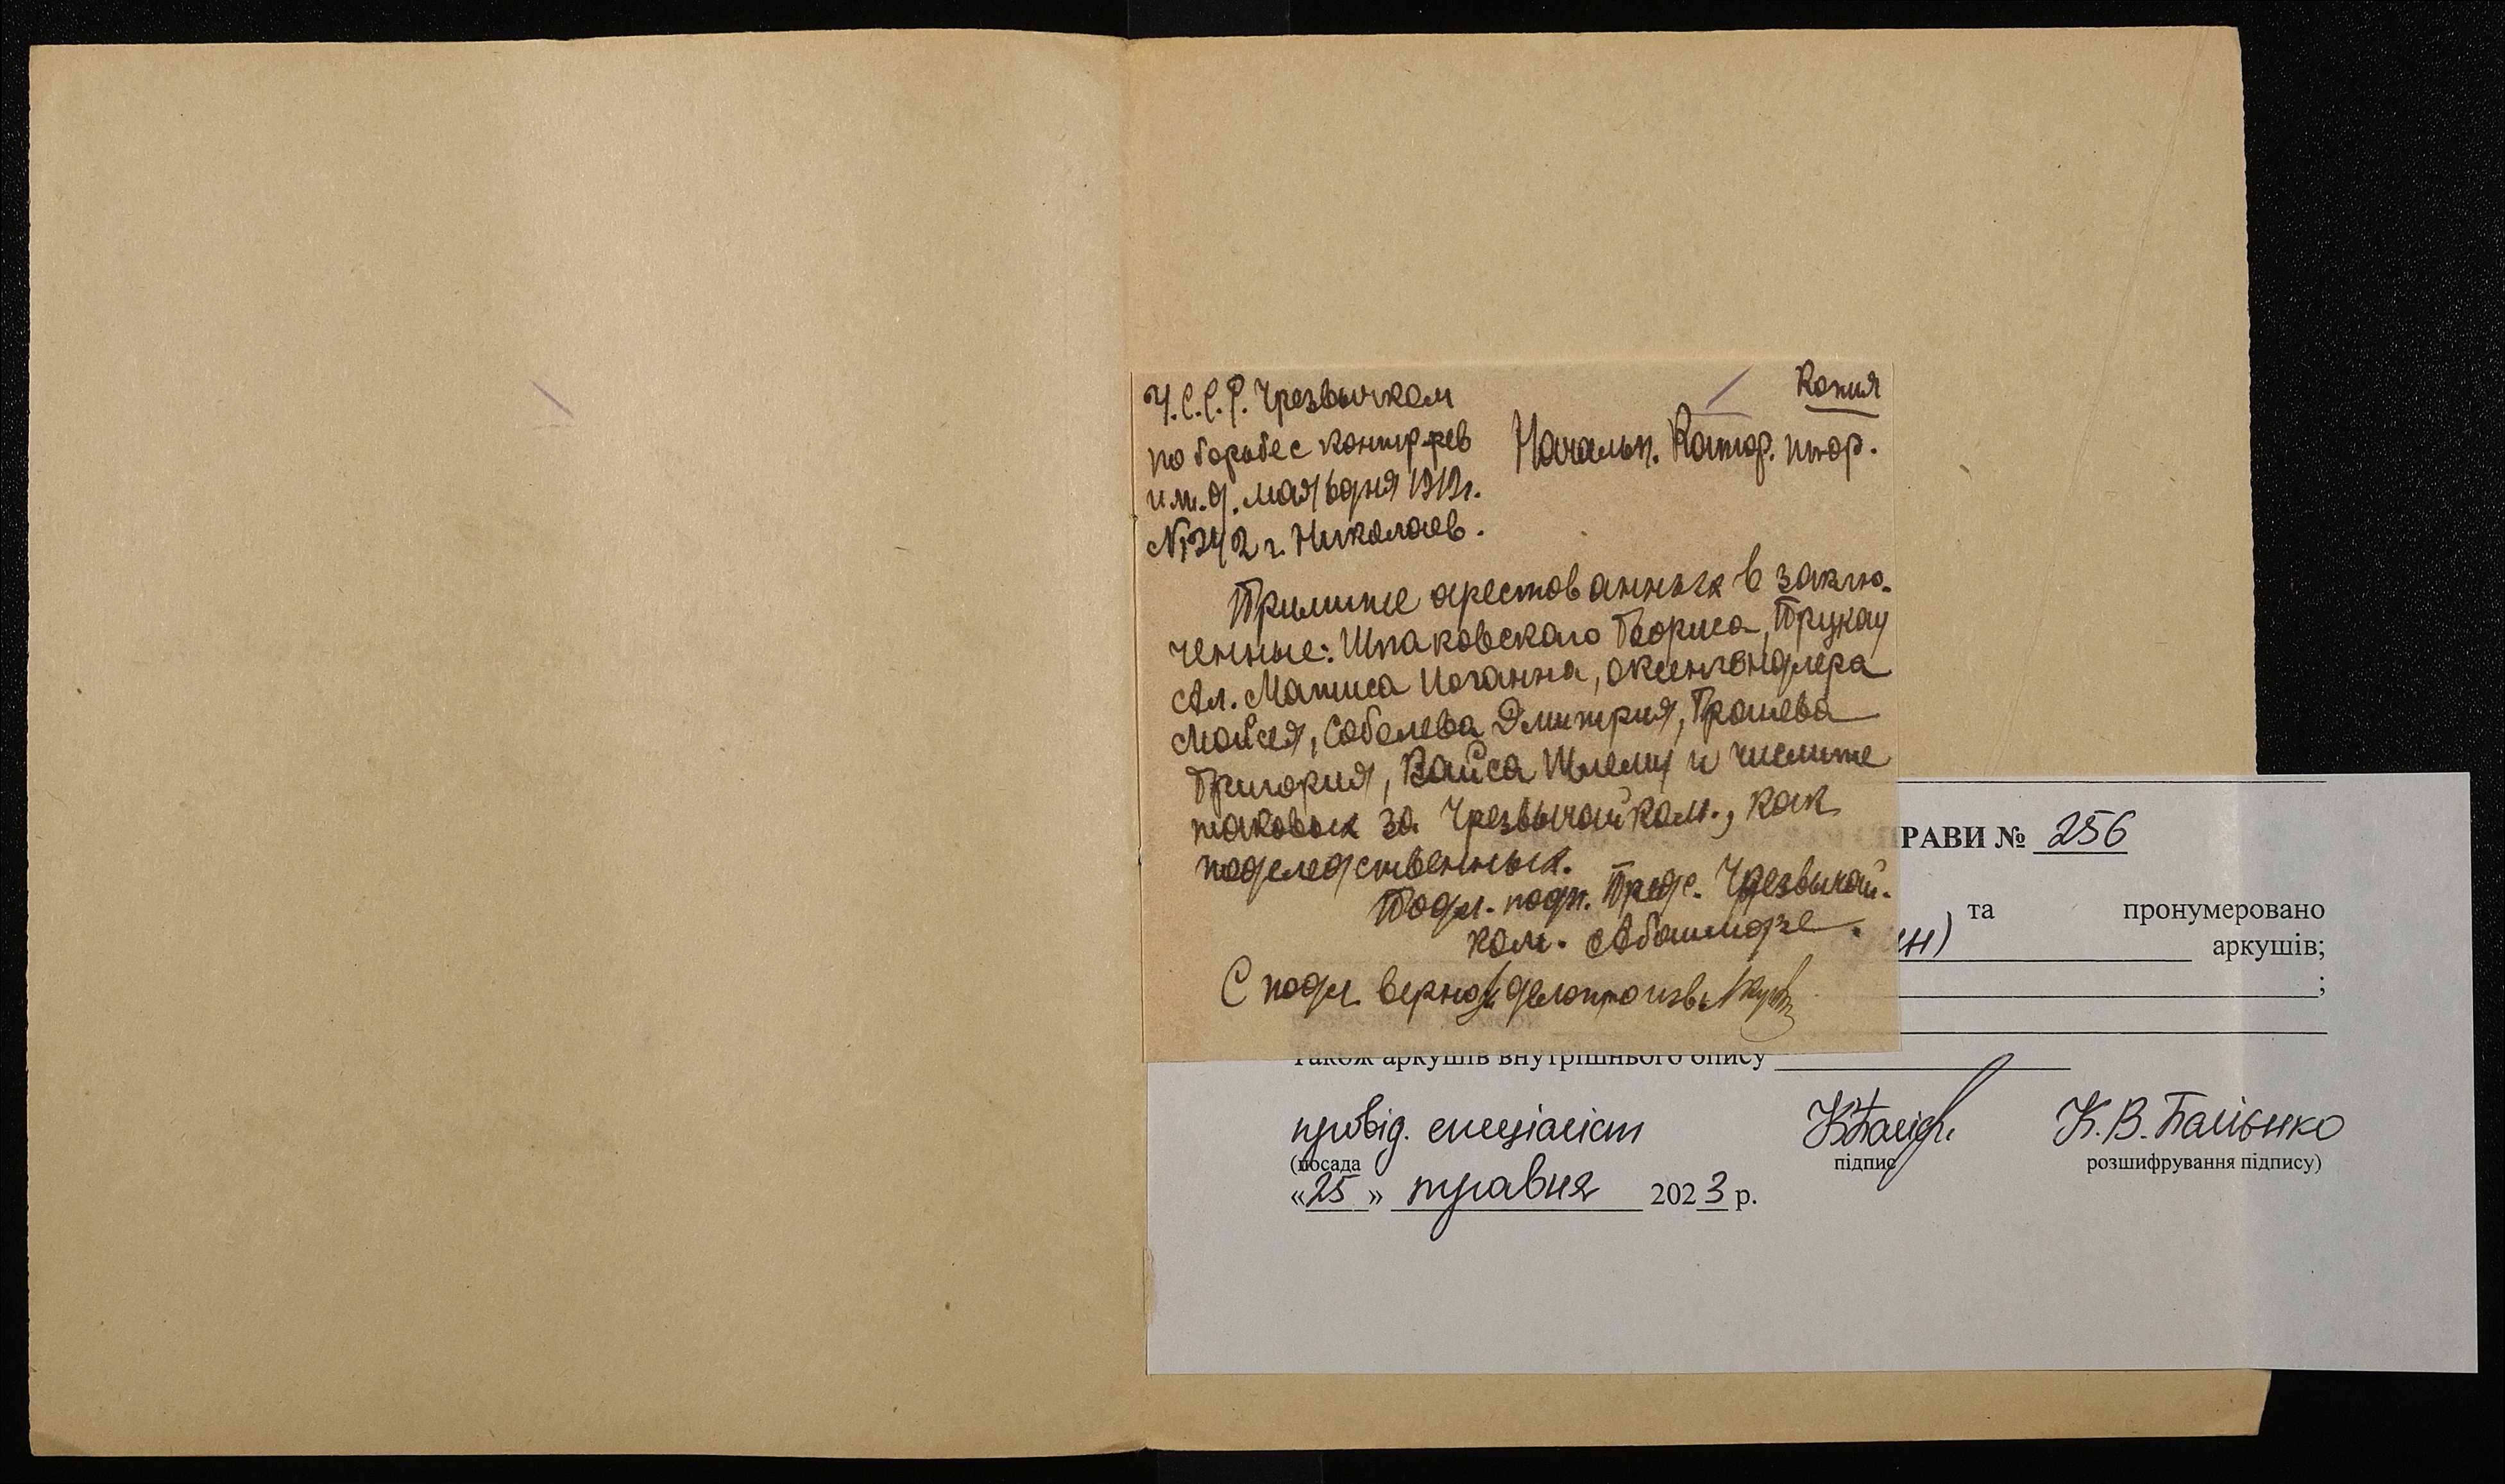 Копия
У.С.С.Р. Чрезвычком
по борьбе с контр-рев
и м. д. мая 6 дня 1919 г.
г. Николаев.
Начальн. Катор. тюр.
Примите арестованных в заклю-
чение: Шпаковского Бориса,
Ал. Матиса Иоганна, Оксенгендлера
Мойсея, Соболева Дмитрия, Грошева
Григория, Вайса Шлему и числите
таковых за Чрезвычайком., как
подследственных.
Подл. подп. Пред. Чрезвычай-
ком. Абашидзе.
С подл верно: делопроизв.
РАВИ № 256
та пронумеровано
ин) аркушів;
;
також аркушів внутрішнього опису
провід. спеціаліст К.В. Балібико
(посада підпис розшифрування підпису)
«25» травня 2023 р.